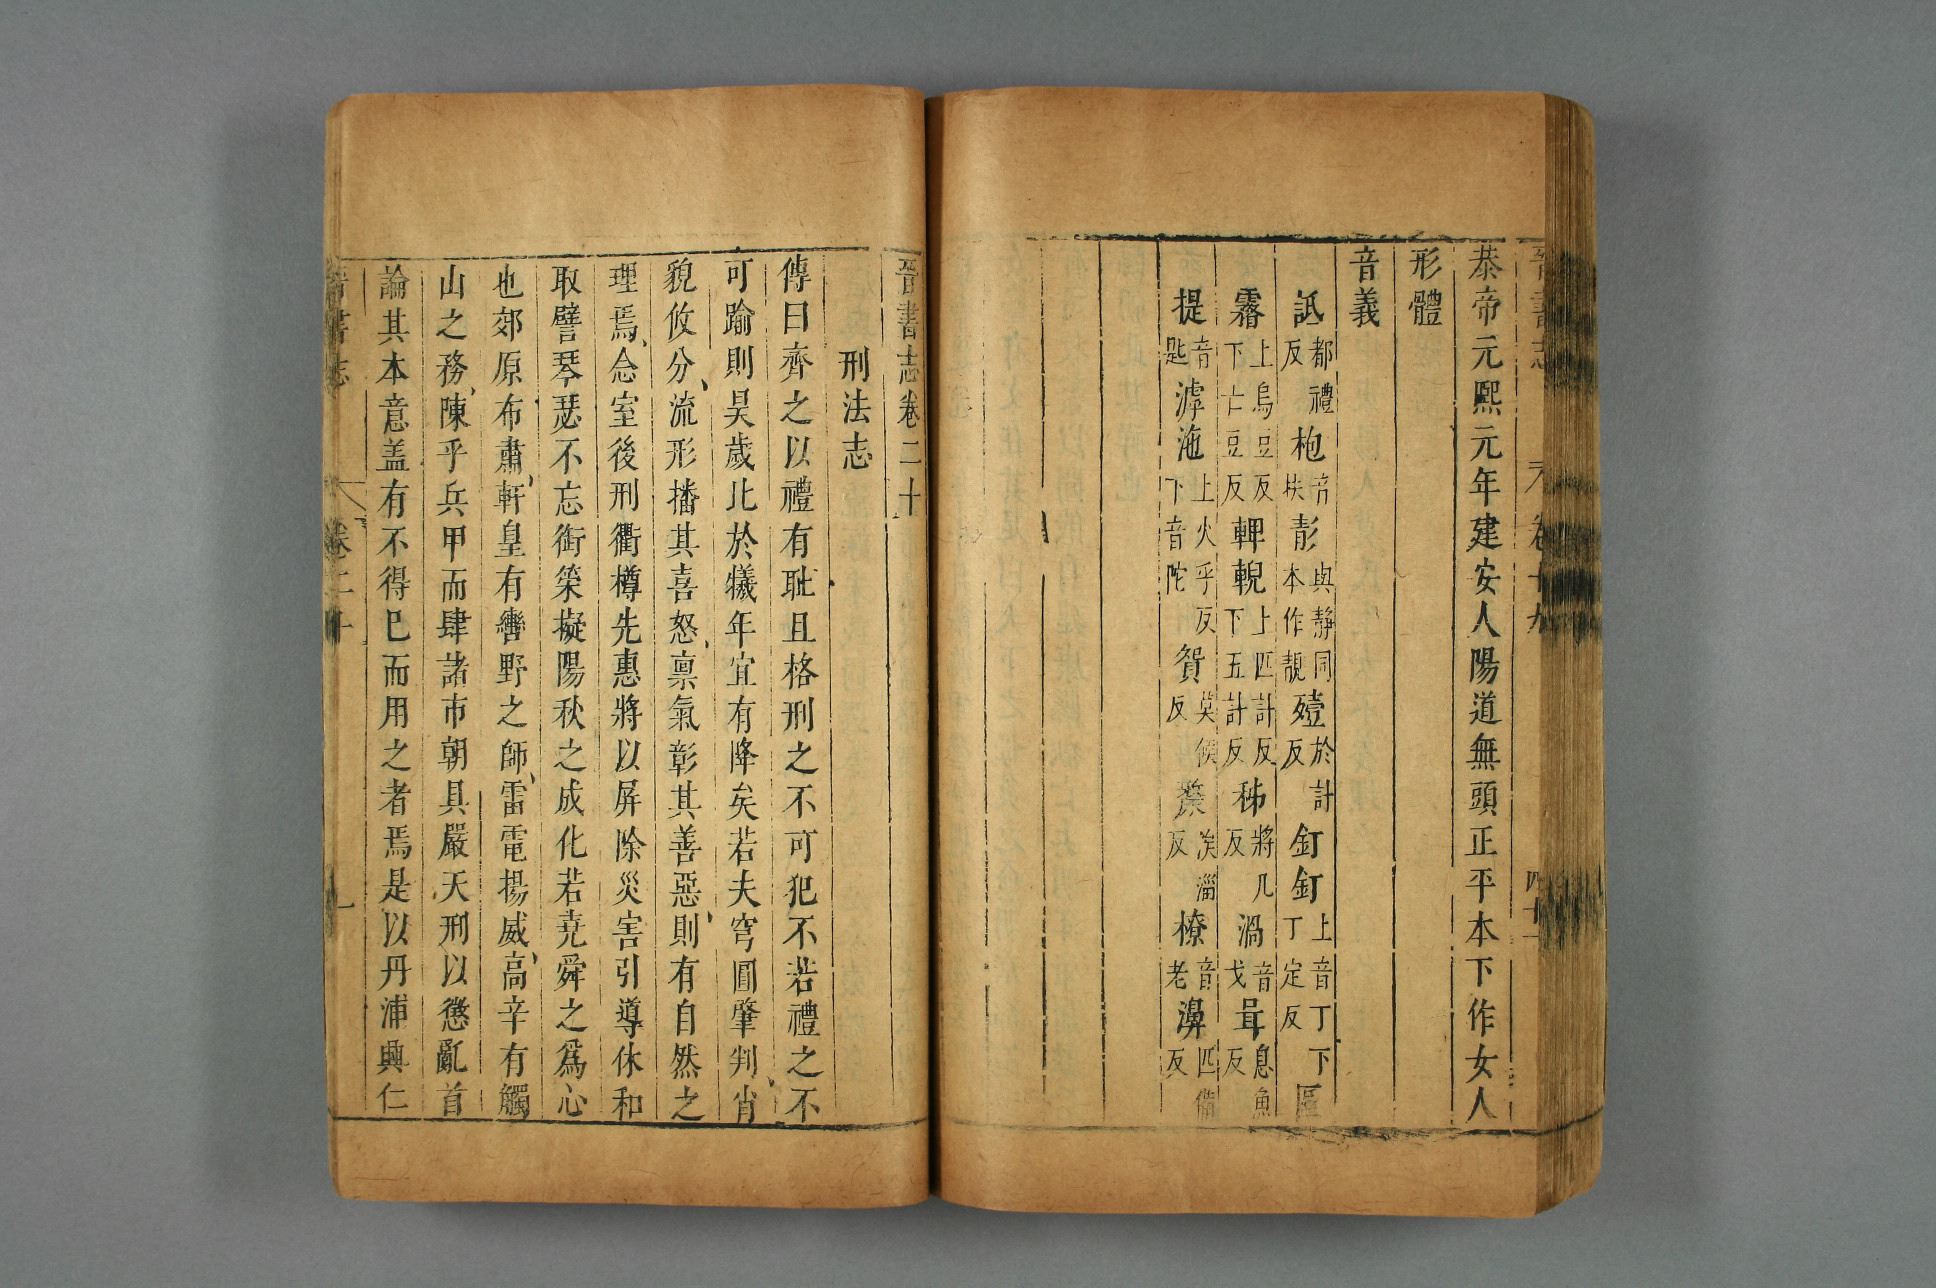 晉書志 卷十九 四十一
恭帝元熙元年建安人陽道無頭正平本下作女人
形體
音義
詆都禮反 枹音扶 彭與靜同本作靚 殪於計反 釘釘上音丁下丁定反 區
霿上烏豆反下亡豆反 輗輗上匹計反下五計反 秭將几反 渦音戈 咠息魚反
提音匙 滹沲上火乎反下音陀 貿莫候反 漦俟淄反 橑音老 濞匹備反
晉書志卷二十
刑法志
傳曰齊之以禮有耻且格刑之不可犯不若禮之不
可踰則昊歲比於犧年宜有降矣若夫穹圓肇判宵
貌攸分流形播其喜怒稟氣彰其善惡則有自然之
理焉念室後刑衢樽先惠將以屏除災害引導休和
取譬琴瑟不忘銜策擬陽秋之成化若堯舜之爲心
也郊原布肅軒皇有轡野之師雷電揚威高辛有觸
山之務陳乎兵甲而肆諸市朝具嚴天刑以懲亂首
論其本意盖有不得已而用之者焉是以丹浦興仁
晉書志 卷二十 一